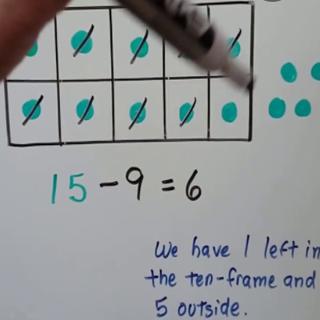 15 - 9 = 6
We have 1 left in
the ten-frame and
5 outside.